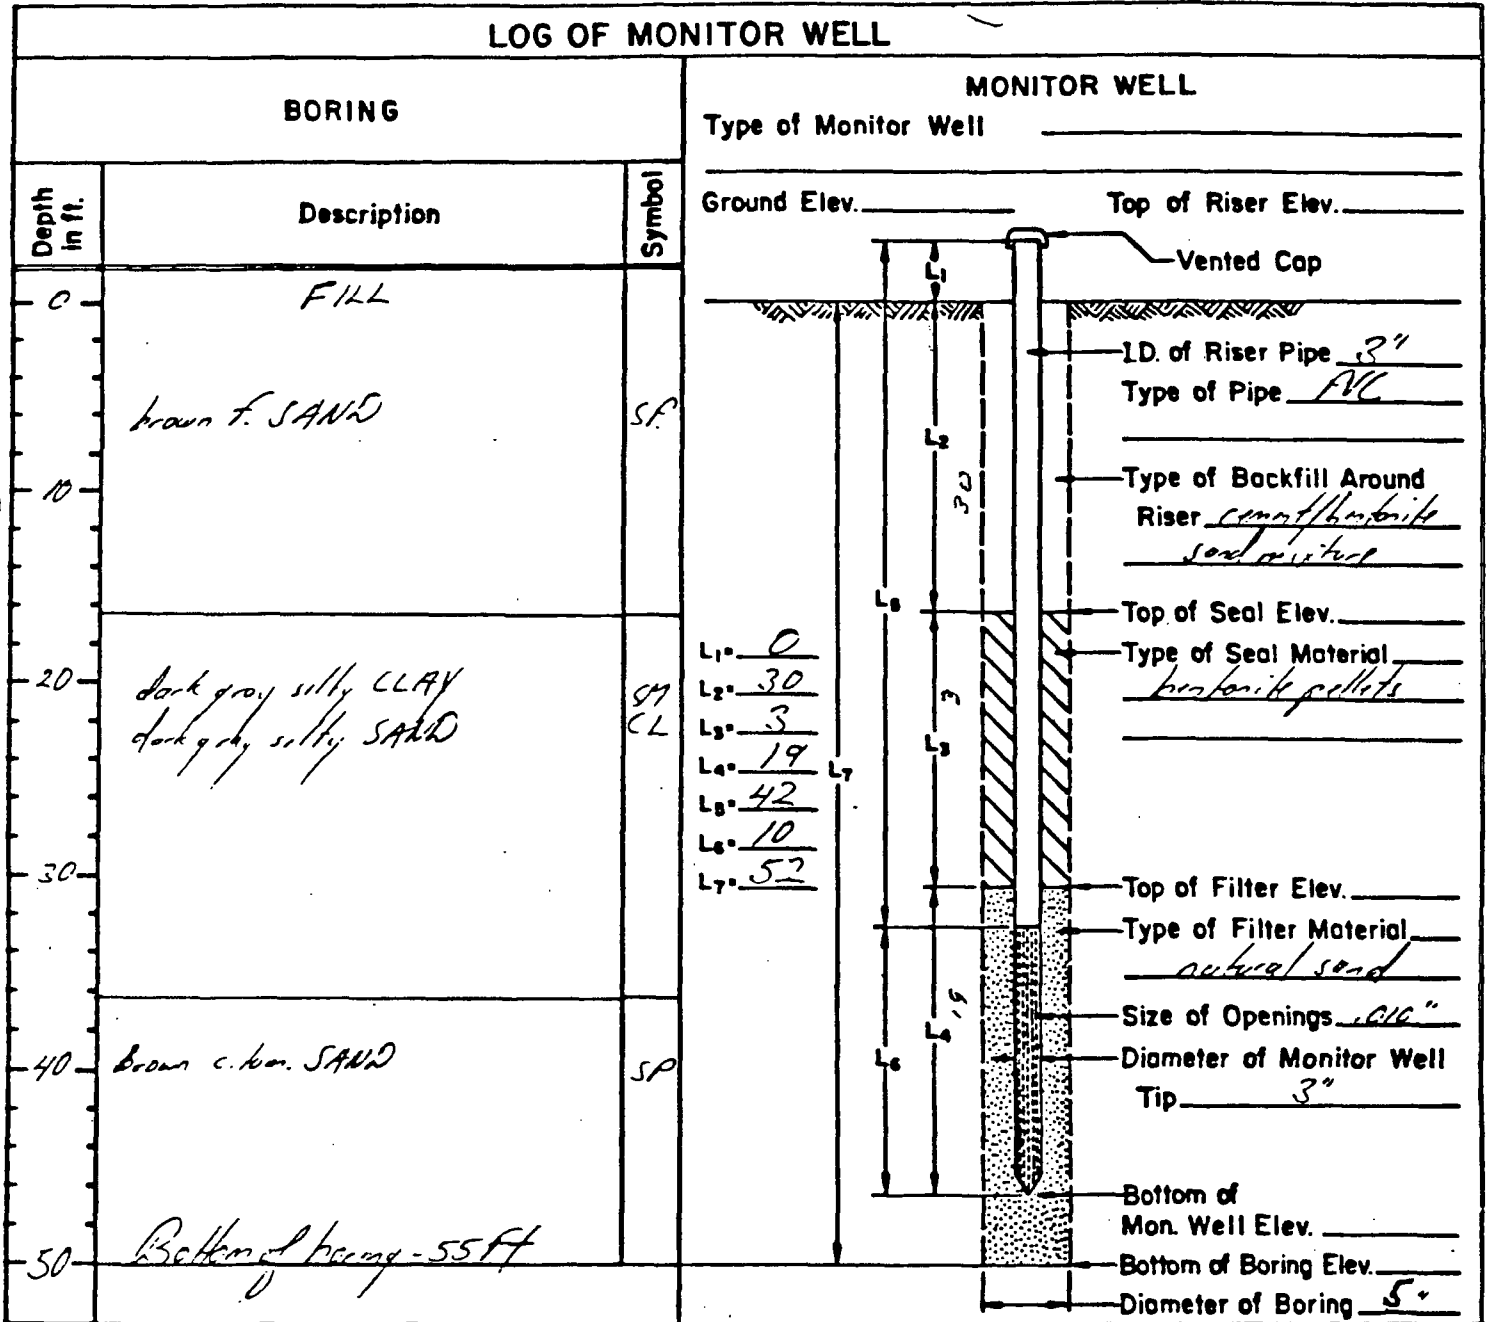 LOG OF MONITOR WELL
BORING
Depth in ft.
Description
Symbol
0
FILL
brown f. SAND
SP
10
20
dark gray silty CLAY
SM
dark gray silty SAND
CL
30
40
brown c. to m. SAND
SP
50
Bottom of boring - 55 ft
MONITOR WELL
Type of Monitor Well
Ground Elev.
Top of Riser Elev.
Vented Cap
L1
I.D. of Riser Pipe 3"
Type of Pipe PVC
L2
30
Type of Backfill Around
Riser cement/bentonite
sand mixture
L5
Top of Seal Elev.
Type of Seal Material
bentonite pellets
L1= 0
L2= 30
L3= 3
L4= 19
L5= 42
L6= 10
L7= 52
L7
L3
3
Top of Filter Elev.
Type of Filter Material
natural sand
Size of Openings .010"
L4
19
L6
Diameter of Monitor Well
Tip 3"
Bottom of
Mon. Well Elev.
Bottom of Boring Elev.
Diameter of Boring 5"